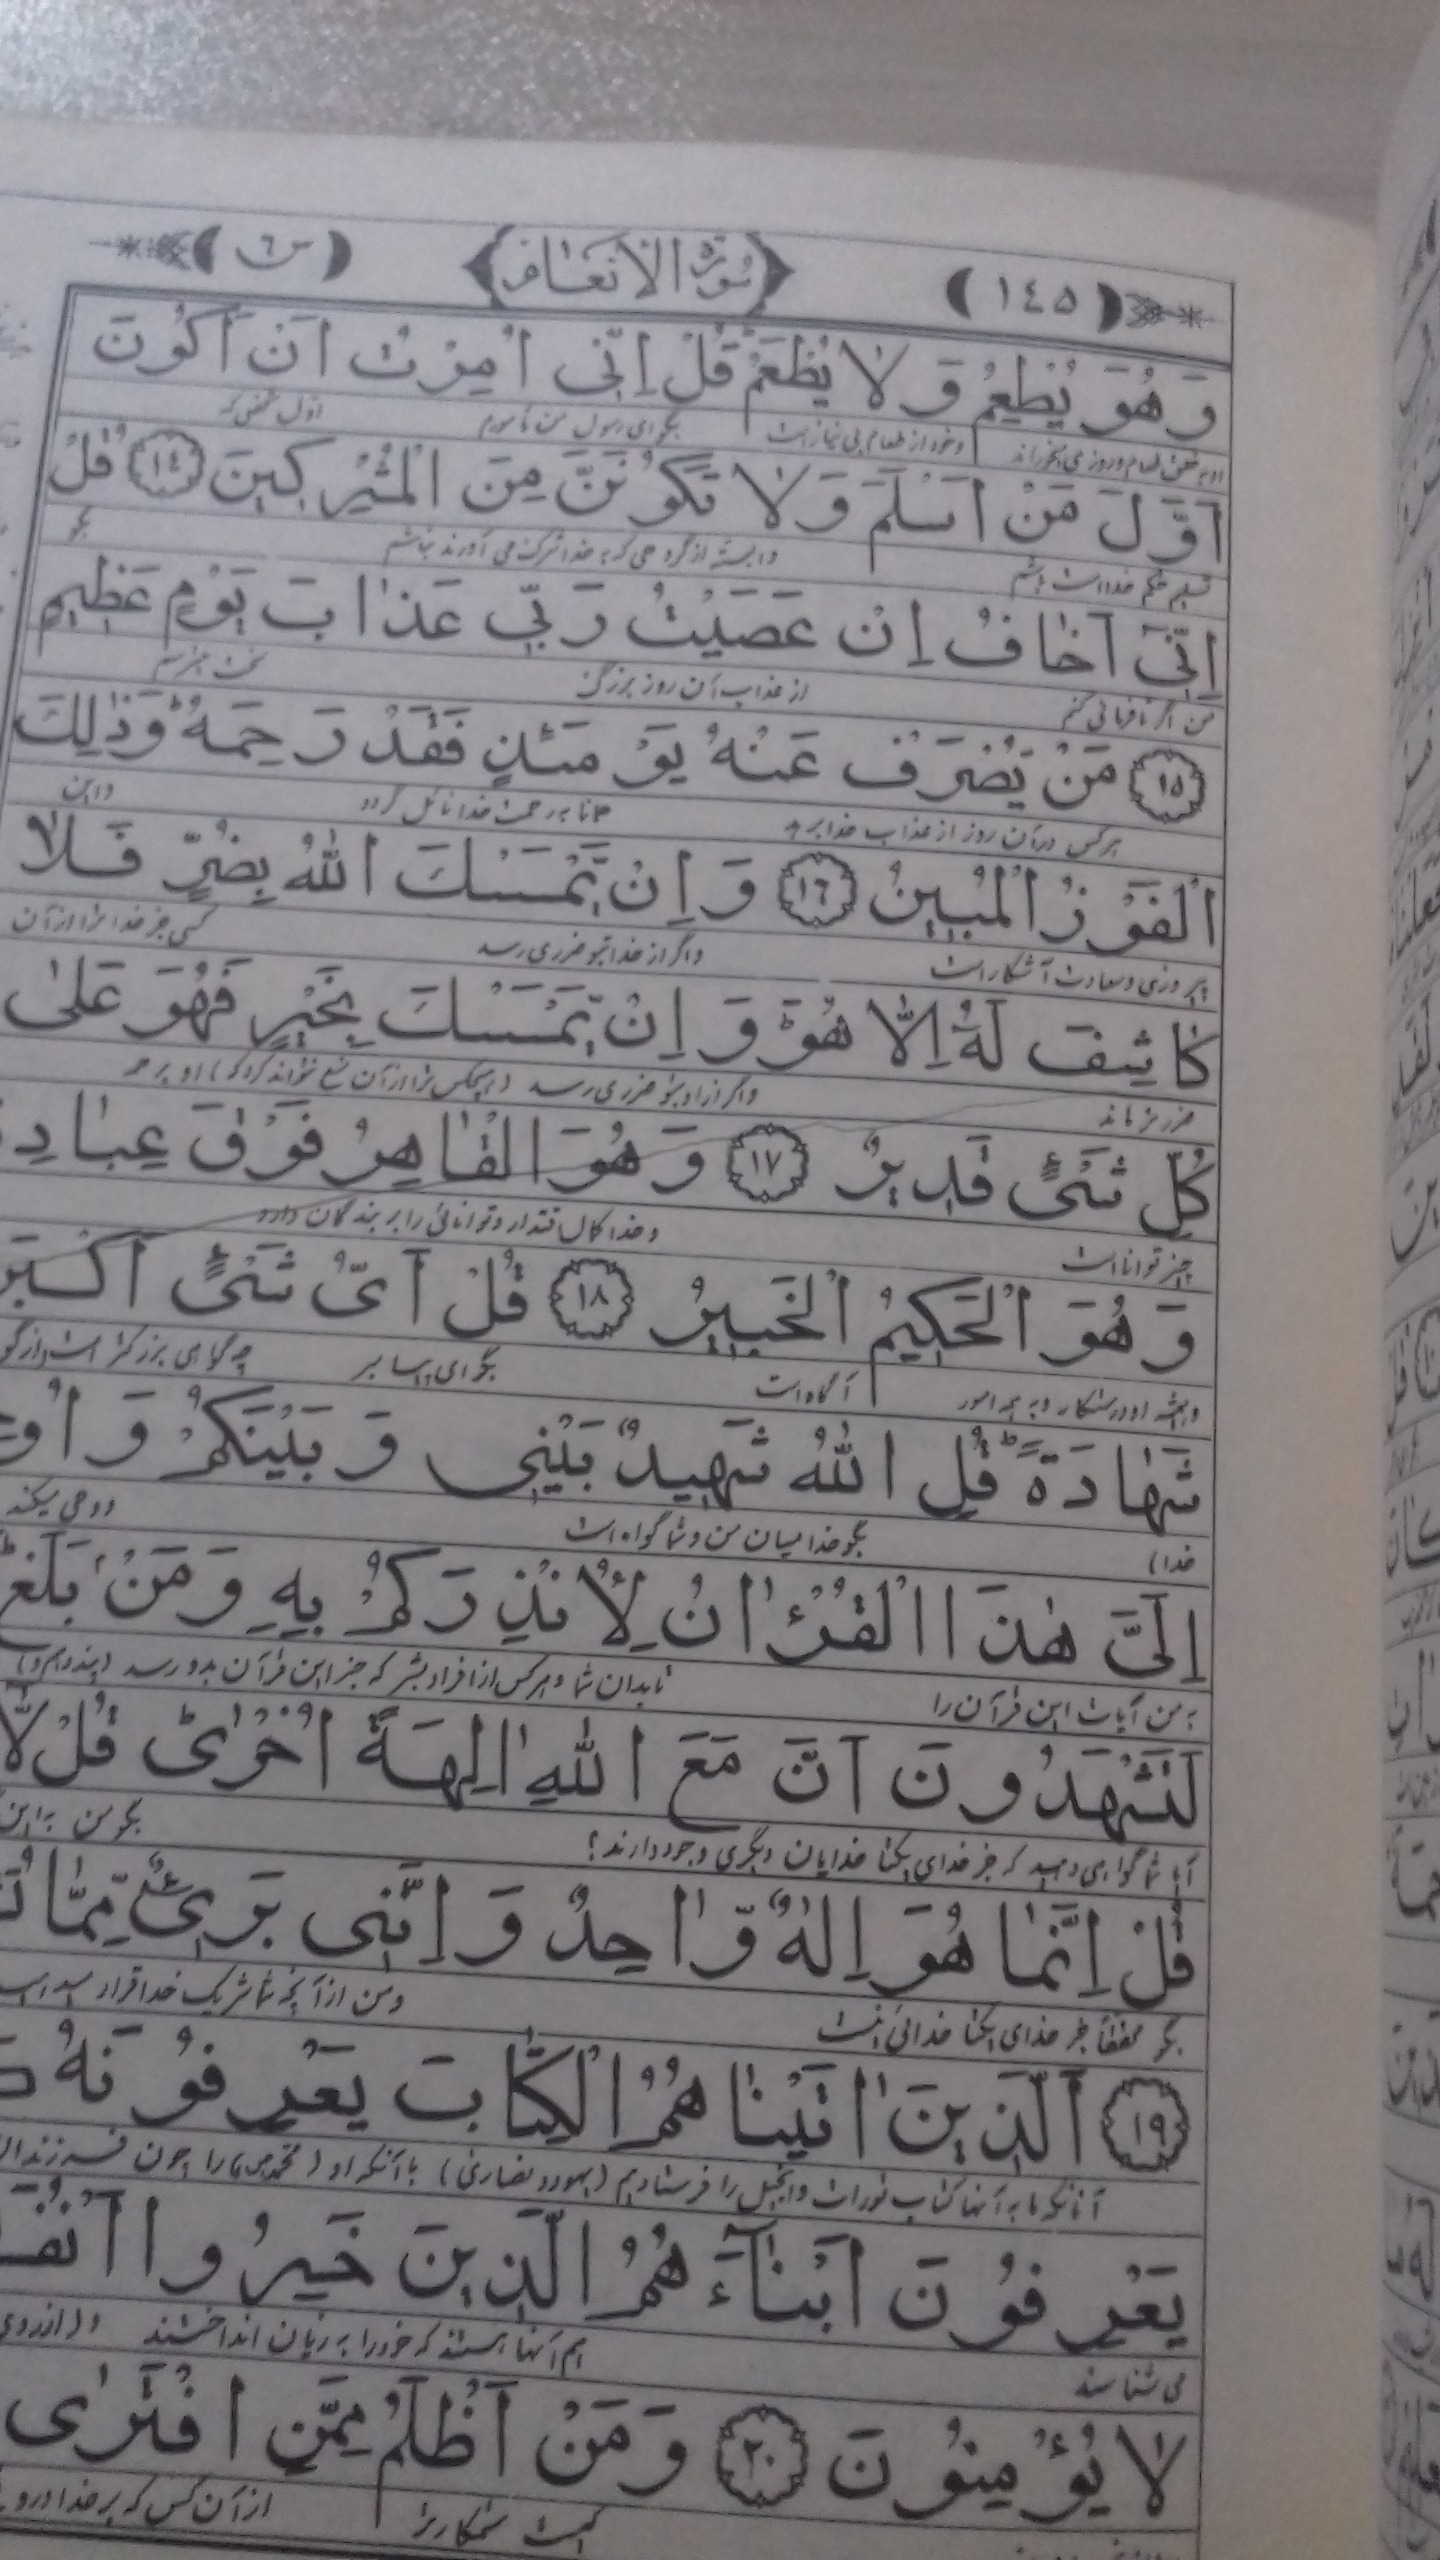 (١٤٥) سورة الأنعام (س٦)
وَ هُوَ يُطْعِمُ وَ لَا يُطْعَمُ قُلْ اِنِّى اُمِرْتُ اَنْ اَكُونَ
بخوراند وخود از طعام بی نیاز است بگو ای رسول من مأمورم اول شخصی که
اَوَّلَ مَنْ اَسْلَمَ وَلَا تَكُونَنَّ مِنَ الْمُشْرِكِينَ ١٤ قُلْ
تسلیم حکم خداست باشم که به خدا شرک می آورند نباشم بگو
اِنِّىٓ اَخَافُ اِنْ عَصَيْتُ رَبِّي عَذَابَ يَوْمٍ عَظِيمٍ
من اگر نافرمانی کنم از عذاب آن روز بزرگ
١٥ مَنْ يُصْرَفْ عَنْهُ يَوْمَئِذٍ فَقَدْ رَحِمَهُ وَذٰلِكَ
هرکس در آن روز از عذاب خدا برهد همانا به رحمت خدا نائل گردد واین
الْفَوْزُ الْمُبِينُ ١٦ وَ اِنْ يَمْسَسْكَ اللّٰهُ بِضُرٍّ فَلَا
پیروزی وسعادت آشکار است واگر از خدا بتو ضرری رسد کسی جز خدا ترا از آن
كَاشِفَ لَهُ اِلَّا هُوَ وَ اِنْ يَمْسَسْكَ بِخَيْرٍ فَهُوَ عَلٰى
واگر از او بتو رسد
كُلِّ شَىْءٍ قَدِيرٌ ١٧ وَ هُوَ الْقَاهِرُ فَوْقَ عِبَادِ
چیز توانا است وخدا کمال اقتدار و توانائی را بر بندگان دارد
وَ هُوَ الْحَكِيمُ الْخَبِيرُ ١٨ قُلْ اَىُّ شَىْءٍ اَكْبَرُ
آگاه است بگو ای پیامبر چه گواهی بزرگتر است
شَهَادَةً قُلِ اللّٰهُ شَهِيدٌ بَيْنِى وَ بَيْنَكُمْ وَ
خدا بگو خدا میان من وشما گواه است و وحی میکند
اِلَىَّ هٰذَا الْقُرْاٰنُ لِاُنْذِرَكُمْ بِهِ وَ مَنْ بَلَغَ
به من آیات این قرآن را تا بدان شما وهرکس از افراد بشر که خبر این قرآن بدو رسد
لَتَشْهَدُونَ اَنَّ مَعَ اللّٰهِ اٰلِهَةً اُخْرٰى قُلْ لَا
آیا شما گواهی دهید که جز خدای یکتا خدایان دیگری وجود دارند؟ بگو من
قُلْ اِنَّمَا هُوَ اِلٰهٌ وَّاحِدٌ وَ اِنَّنِى بَرِىءٌ مِمَّا
بگو جز خدای یکتا خدائی نیست ومن از آنچه شما شریک خدا قرار
١٩ اَلَّذِينَ اٰتَيْنَاهُمُ الْكِتَابَ يَعْرِفُونَهُ
آنانکه ما به آنها کتاب تورات وانجیل را فرستادیم (یهود ونصاری) با آنکه او (محمد ص) را چون
يَعْرِفُونَ اَبْنَآءَهُمُ الَّذِينَ خَسِرُوا
می شناسند هم آنها هستند که خود را به زیان انداختند
لَا يُؤْمِنُونَ ٢٠ وَ مَنْ اَظْلَمُ مِمَّنِ افْتَرٰى
کیست ستمکارتر از آن کس که بر خدا